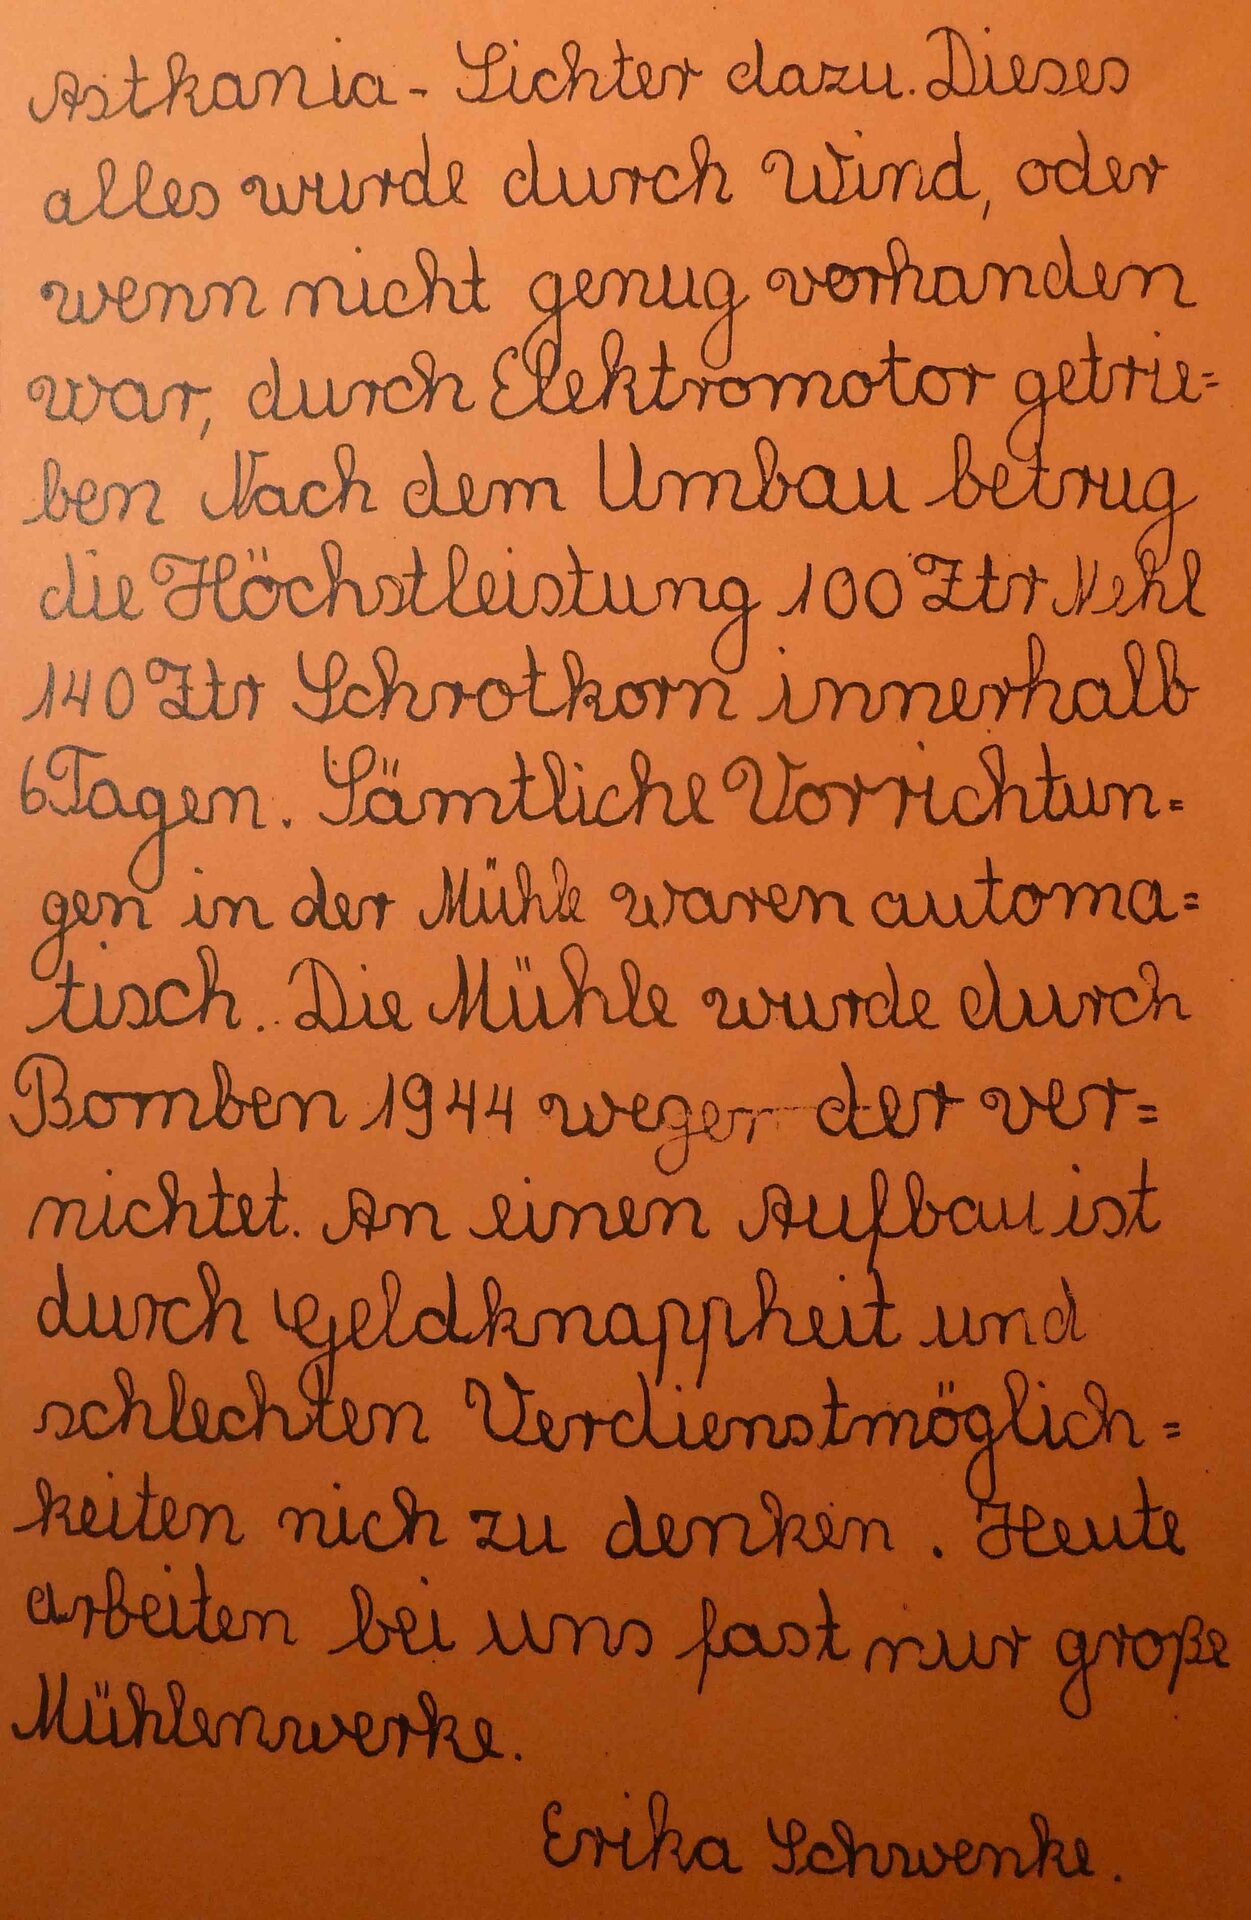 Astkania - Sichter dazu. Dieses
alles wurde durch Wind, oder
wenn nicht genug vorhanden
war, durch Elektromotor getrie=
ben Nach dem Umbau betrug
die Höchstleistung 100 Ztr Mehl
140 Ztr Schrotkorn innerhalb
6 Tagen. Sämtliche Vorrichtun=
gen in der Mühle waren automa=
tisch. Die Mühle wurde durch
Bomben 1944 wegen der ver=
nichtet. An einen Aufbau ist
durch Geldknappheit und
schlechten Verdienstmöglich=
keiten nich zu denken. Heute
arbeiten bei uns fast nur große
Mühlenwerke.
Erika Schwenke.